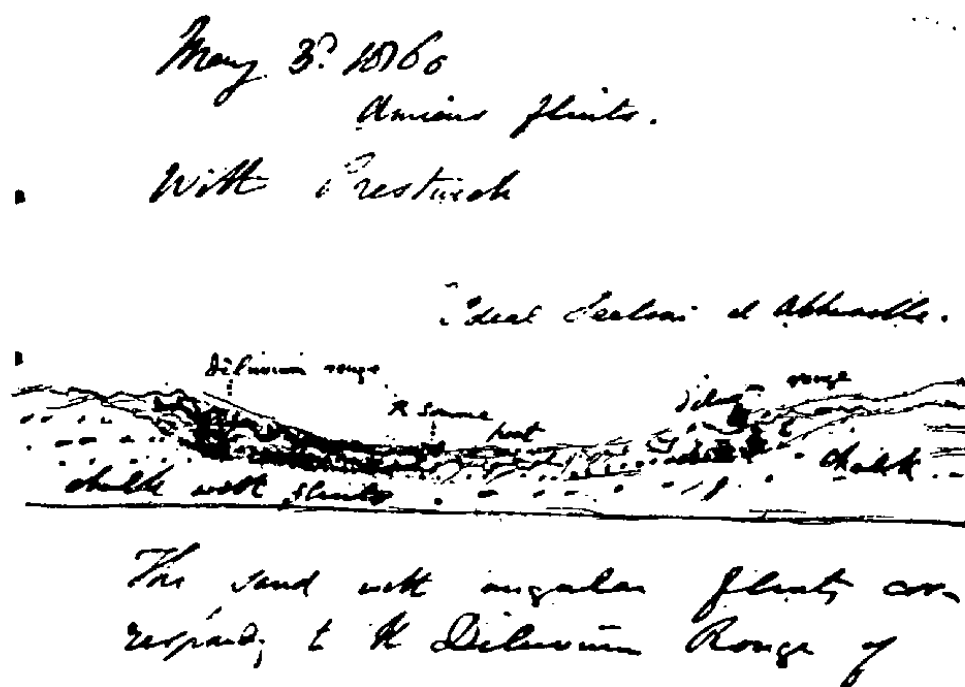 May 3d. 1860
Amiens flints.
With Prestwich
Ideal Section at Abbeville.
Diluvium rouge
R Somme
peat
Diluv rouge
chalk with flints
chalk
The sand with angular flints cor-
responds to the Diluvium Rouge of